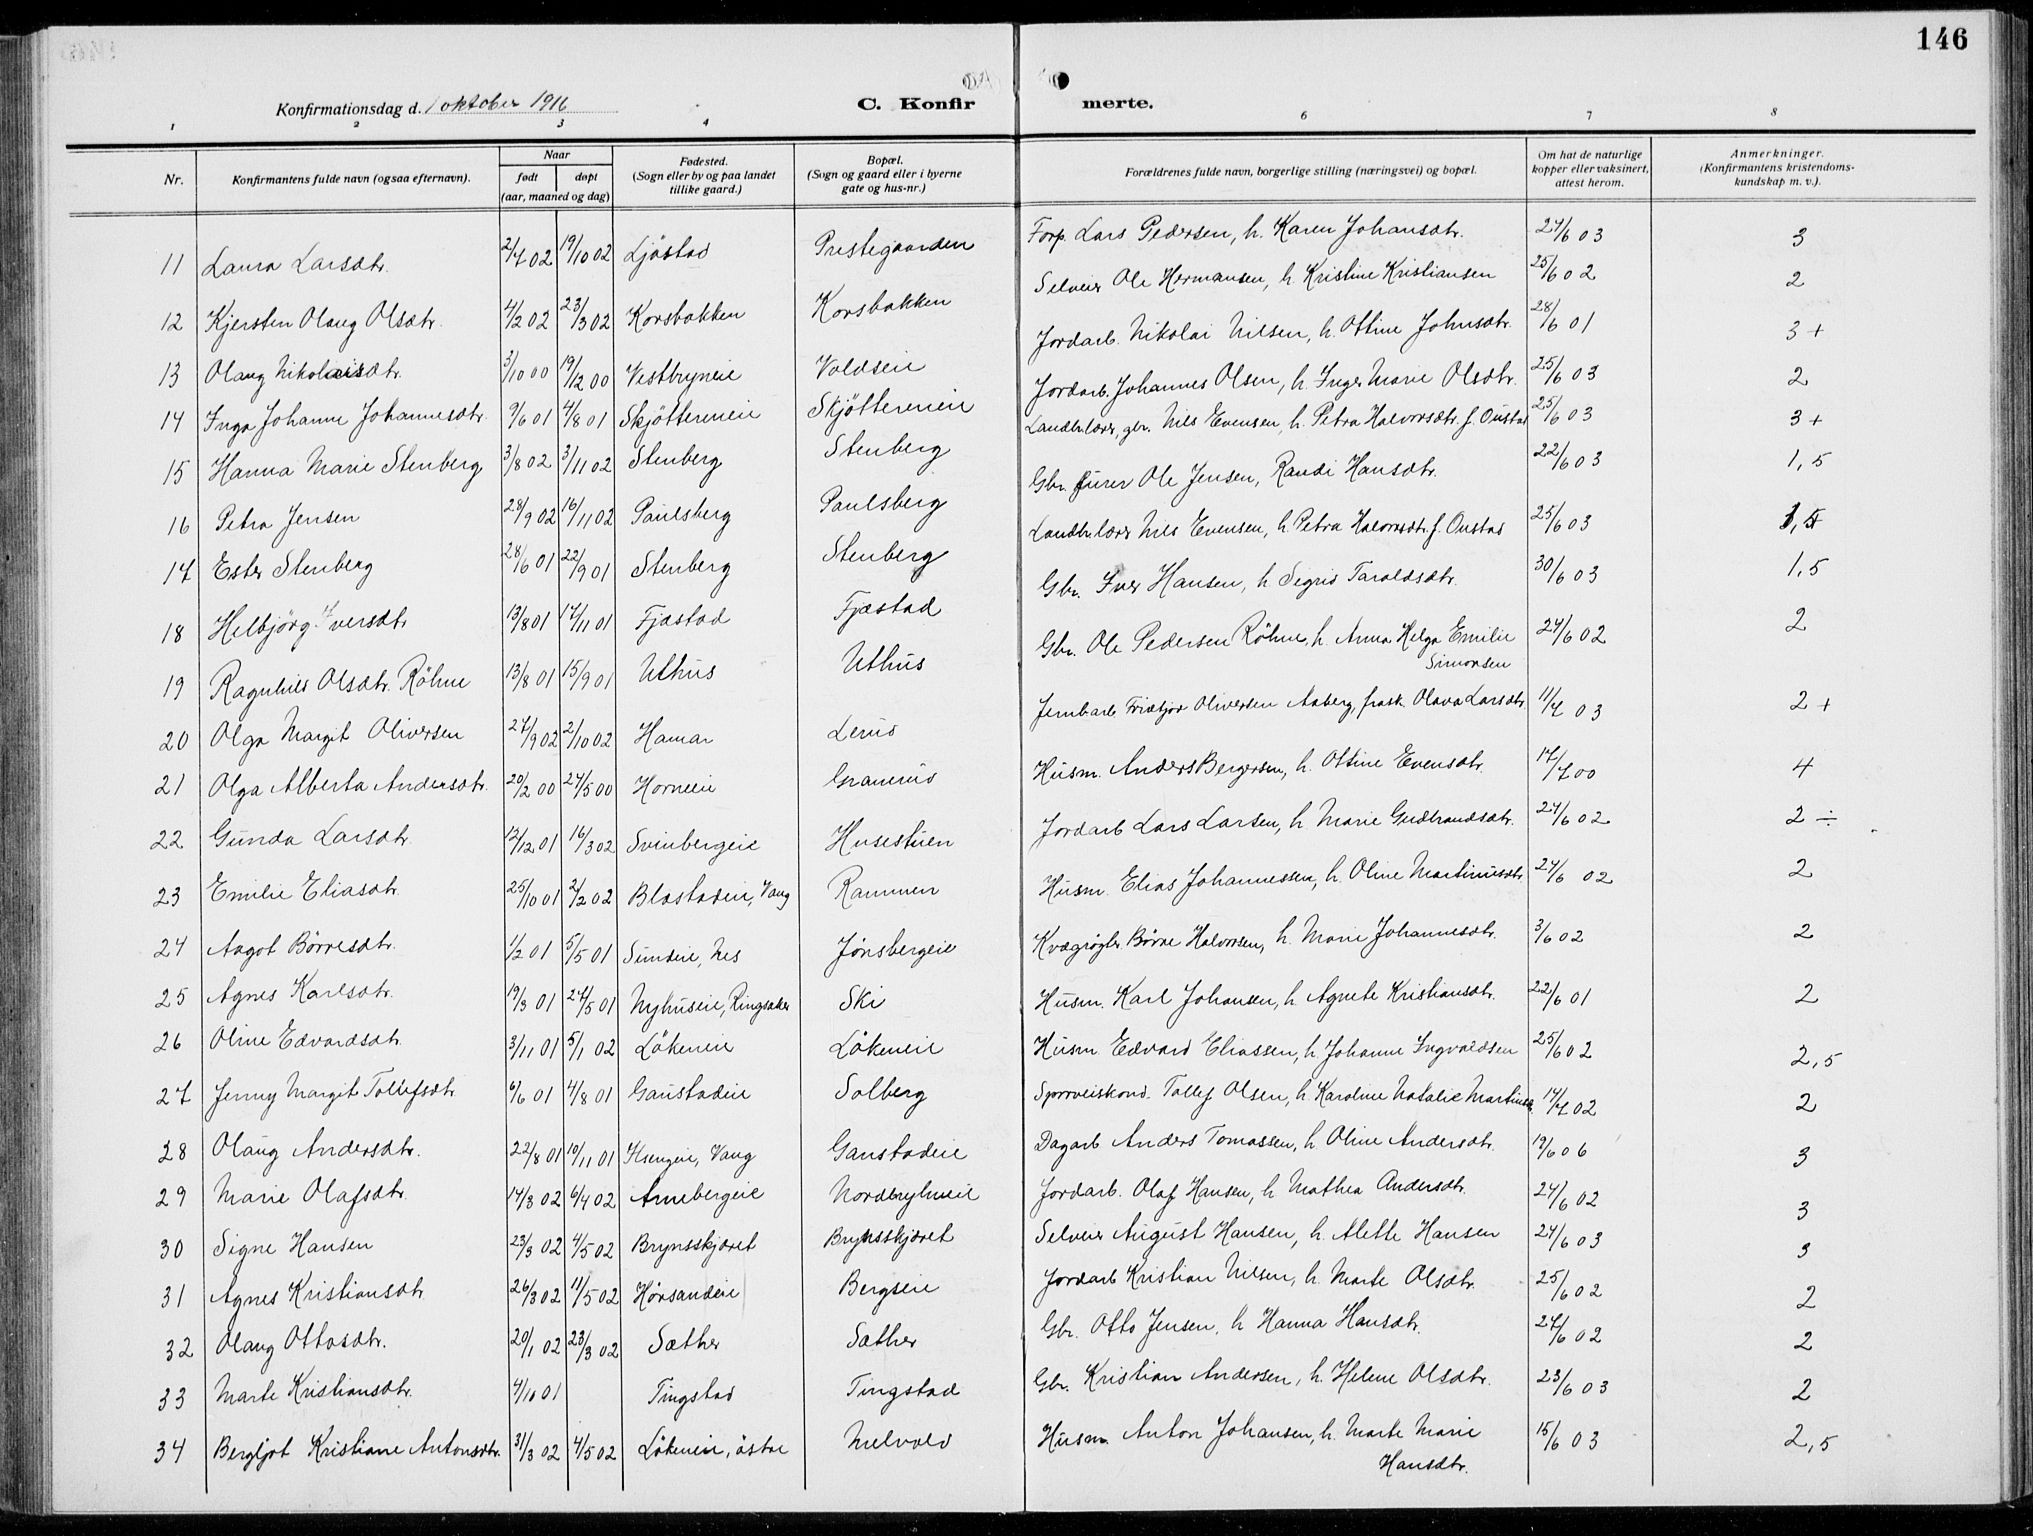 146
Konfirmationsdag d. 1 oktober 1916
C. Konfirmerte.
1 2 3 4 6 7 8
Nr.
Konfirmantens fulde navn (ogsaa efternavn).
Naar
født døpt
(aar, maaned og dag)
Fødested.
(Sogn eller by og paa landet
tillike gaard.)
Bopæl.
(Sogn og gaard eller i byerne
gate og hus-nr.)
Forældrenes fulde navn, borgerlige stilling (næringsvei) og bopæl.
Om hat de naturlige
kopper eller vaksinert,
attest herom.
Anmerkninger.
(Konfirmantens kristendoms-
kundskap m. v.).
11 Laura Larsdtr. 2/7 02 19/10 02 Ljøstad Prestegaarden Forp. Lars Pedersen, h. Karen Johansdtr. 24/6 03 3
12 Kjersten Olaug Olsdtr. 4/2 02 23/3 02 Korsbakken Korsbakken Selveier Ole Hermansen, h. Kristine Kristiansen 25/6 02 2
13 Olaug Nikolaisdtr. 3/10 00 19/12 00 Vestbryneie Voldseie Jordarb. Nikolai Nilsen, h. Ottine Johnsdtr. 28/6 01 3+
14 Inga Johanne Johannesdtr. 9/6 01 4/8 01 Skjøttereneie Skjøttereneie Jordarb. Johannes Olsen, h. Inger Marie Olsdtr. 25/6 03 2
15 Hanna Marie Stenberg 3/8 02 3/11 02 Stenberg Stenberg Landh.lærer, gbr. Nils Evensen, h. Petra Halvorsdtr. f. Oustad 25/6 03 3+
16 Petra Jensen 28/9 02 16/11 02 Paulsberg Paulsberg Gbr. furer Ole Jensen, Randi Hansdtr. 22/6 03 1,5
17 Ester Stenberg 28/6 01 22/9 01 Stenberg Stenberg Landh.lærer Nils Evensen, h. Petra Halvorsdtr. f. Oustad 25/6 03 1,5
18 Helbjörg Iversdtr 13/8 01 17/11 01 Fjæstad Fjæstad Gbr. Iver Hansen, h. Sigrid Taraldsdtr. 30/6 03 1,5
19 Ragnhild Olsdtr. Röhne 13/8 01 15/9 01 Uthus Uthus Gbr. Ole Pedersen Röhne, h. Anna Helga Emilie
Simonsen 24/6 02 2
20 Olga Margit Oliversen 27/9 02 2/10 02 Hamar Lerud Jernbarb. Fridtjov Oliversen Aaberg, frask. Olava Larsdtr. 11/7 03 2+
21 Olga Alberta Andersdtr. 20/2 00 24/5 00 Horneeie Granerud Husm. Anders Bergersen, h. Ottine Evensdtr. 17/7 00 4
22 Gunda Larsdtr. 12/12 01 16/3 02 Svinbergeie Husestuen Jordarb Lars Larsen, h. Marie Gudbrandsdtr. 24/6 02 2 ÷
23 Emilie Eliasdtr. 25/10 01 2/2 02 Blæstadeie, Vang Rammen Husm. Elias Johannessen, h. Oline Martinusdtr 24/6 02 2
24 Aagot Börresdtr. 1/2 01 5/5 01 Sundeie, Nes Jønsbergeie Kvægrøgter Börre Halvorsen, h. Marie Johannesdtr. 3/6 02 2
25 Agnes Karlsdtr. 19/3 01 27/5 01 Nyhuseie, Ringsaker Ski Husm. Karl Johansen, h. Agnete Kristiansdtr. 22/6 01 2
26 Oline Edvardsdtr. 3/11 01 5/1 02 Lökeneie Lökeneie Husm Edvard Eliassen, h. Johanne Ingvaldsen 25/6 02 2,5
27 Jenny Margit Tollefsdtr 6/6 01 4/8 01 Gaustadeie Solberg Sporveiskond. Tollef Olsen, h. Karoline Natalie Martinsdtr. 17/7 02 2
28 Olaug Andersdtr. 22/8 01 10/11 01 Vang Gaustadeie Dagarb. Anders Tomassen, h. Oline Andersdtr. 19/6 06 3
29 Marie Olafsdtr. 14/3 02 6/4 02 Arnebergeie Nordbyhneie Jordarb. Olaf Hansen, h Mathea Andersdtr. 24/6 02 3
30 Signe Hansen 23/3 02 4/5 02 Brynsskjæret Brynsskjæret Selveier August Hansen, h. Alette Hansen 24/6 03 3
31 Agnes Kristiansdtr 26/3 02 11/5 02 Hörsandeie Bergseie Jordarb Kristian Nilsen, h. Marte Olsdtr. 25/6 02 2
32 Olaug Ottosdtr. 20/1 02 23/3 02 Sæther Sæther Gbr. Otto Jensen, h Hanna Hansdtr. 24/6 02 2
33 Marte Kristiansdtr. 4/10 01 Tingstad Tingstad Gbr. Kristian Andersen, h. Helene Olsdtr. 23/6 03 2
34 Bergljot Kristiane Antonsdtr. 31/3 02 4/5 02 Lökeneie, östre Melvold Husm. Anton Johansen, h. Marte Marie
Hansdtr. 15/6 03 2,5